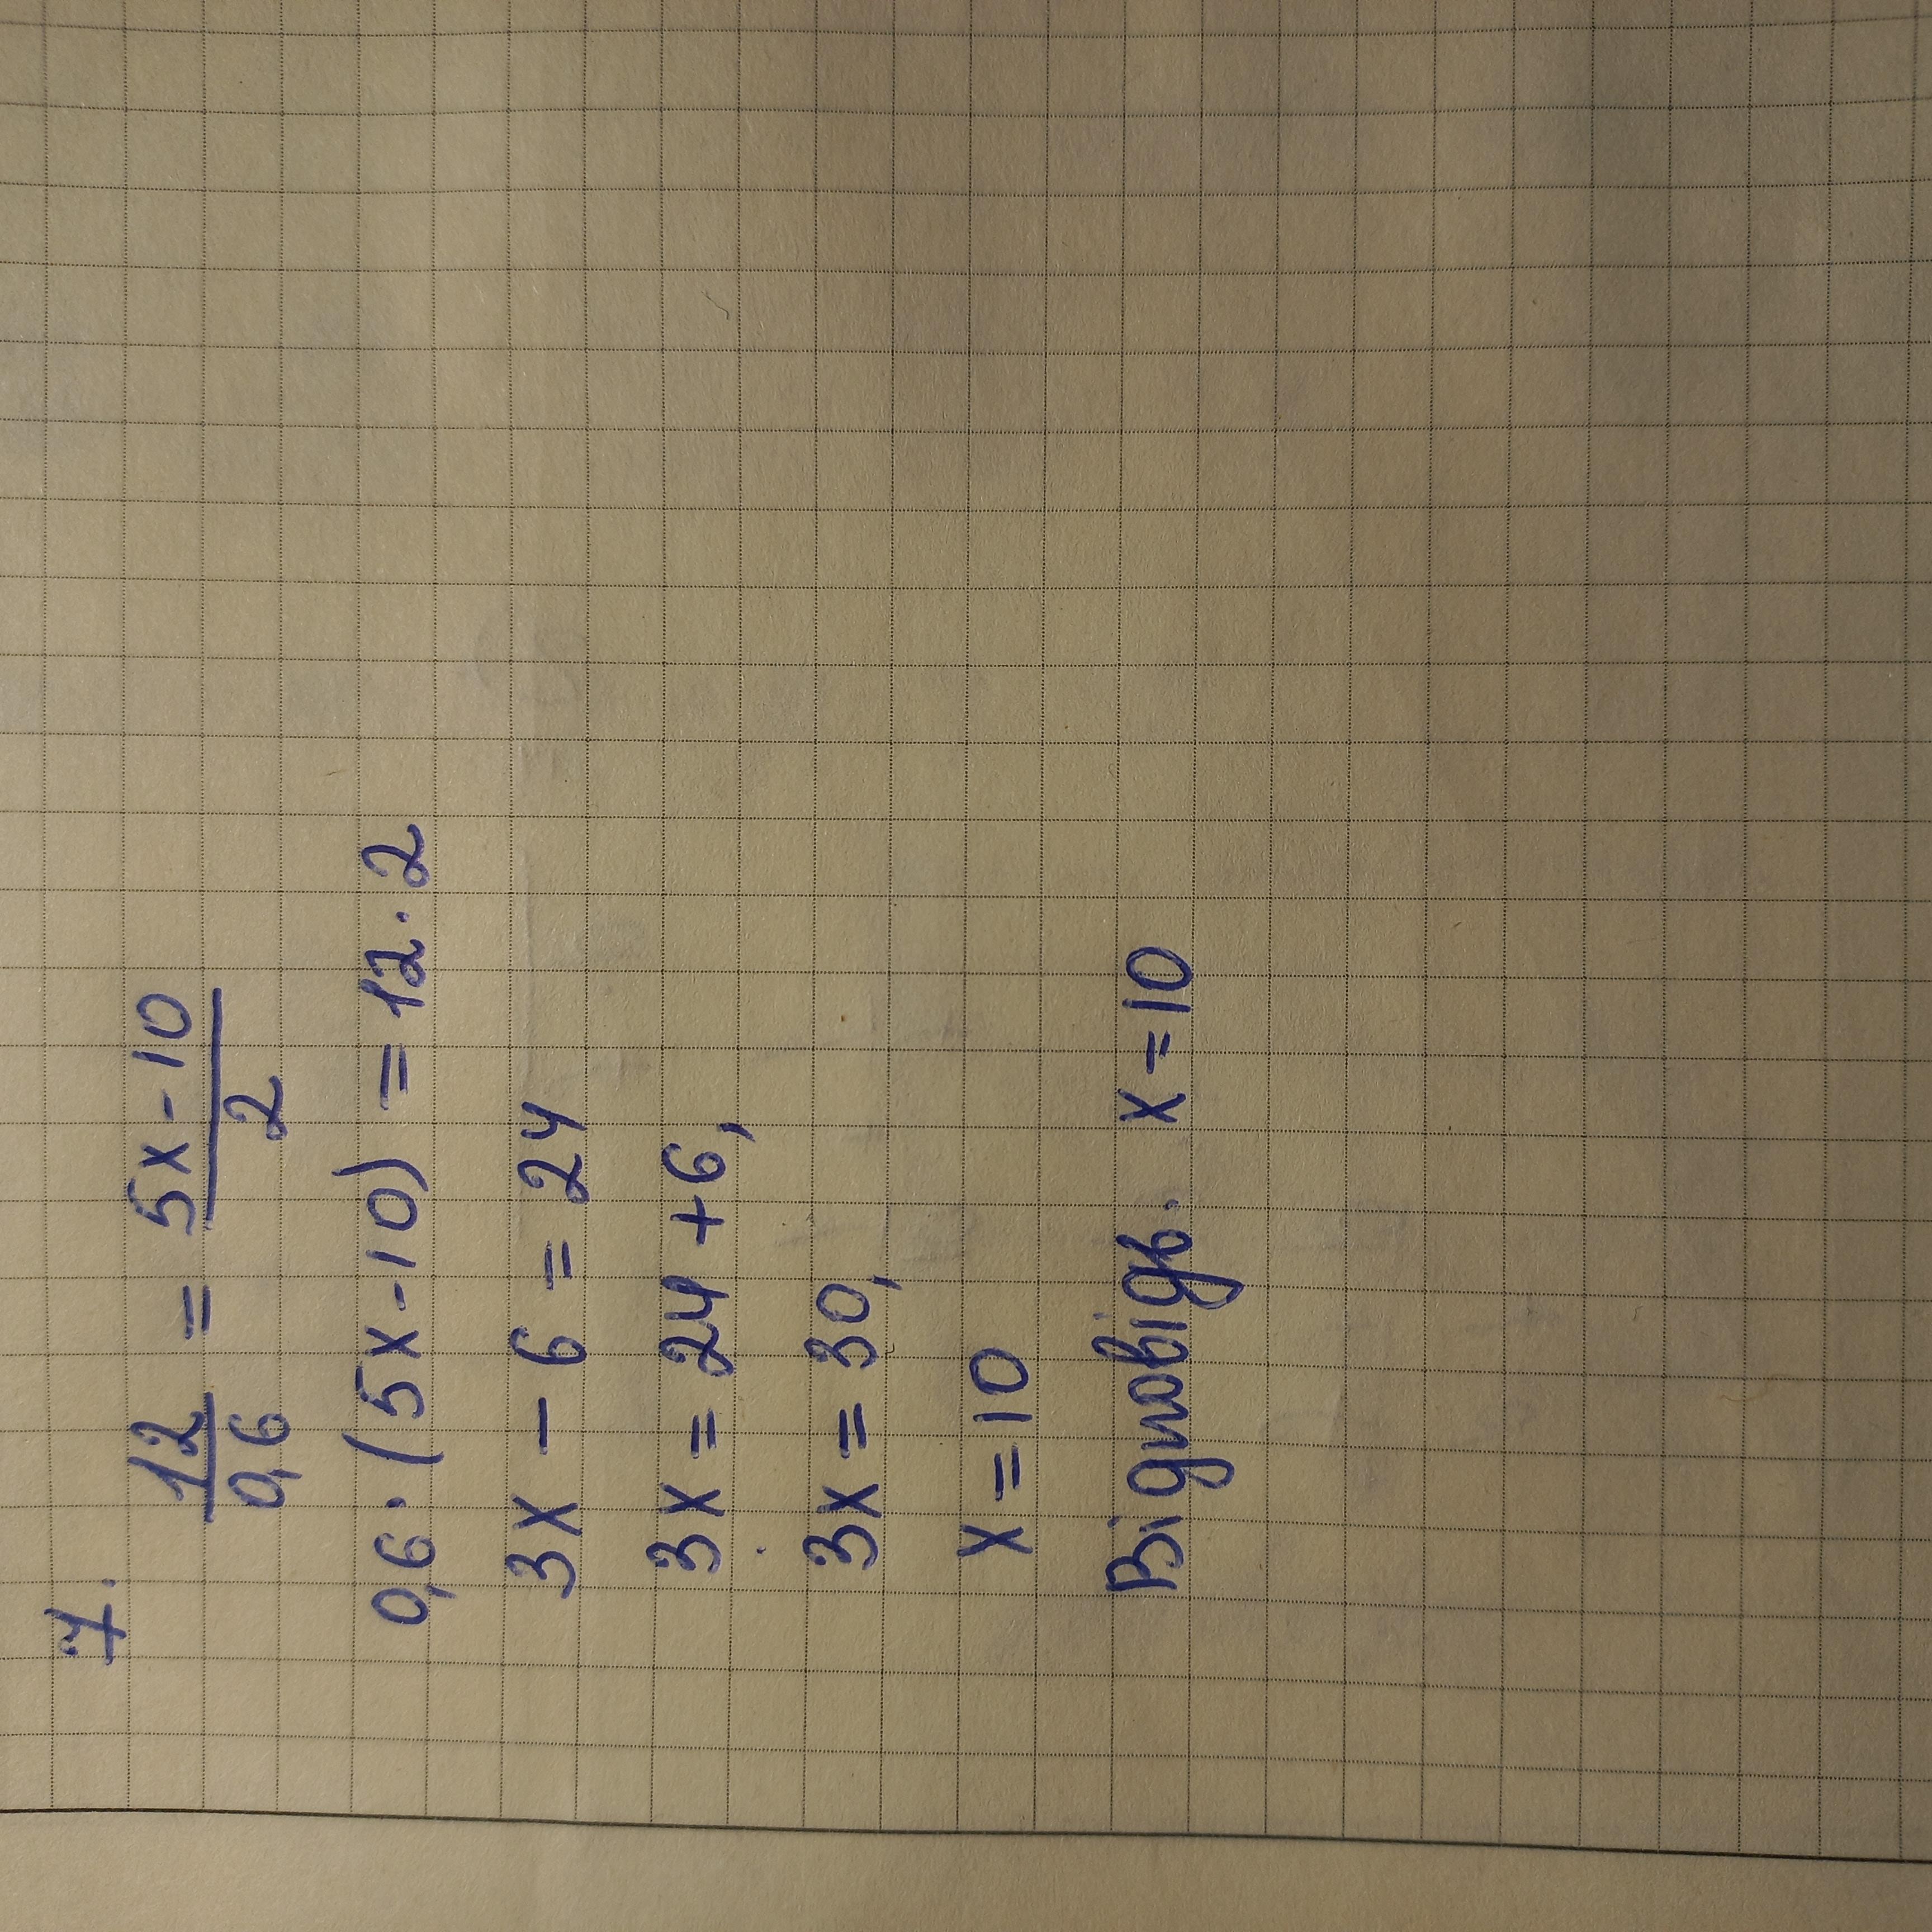 7.
12/0,6 = 5x-10/2
0,6·(5x-10) = 12·2
3x - 6 = 24
3x = 24+6,
3x = 30,
x = 10
Відповідь. x=10